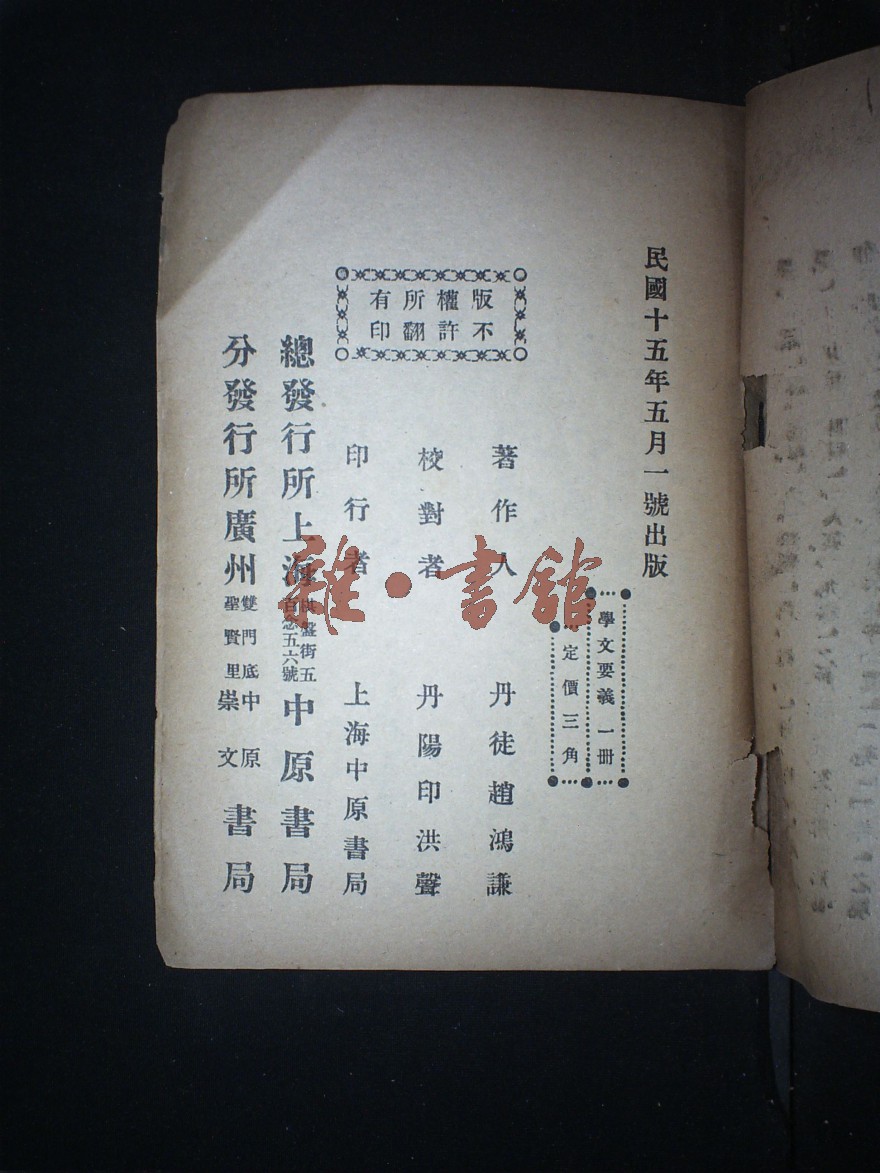 民國十五年五月一號出版
學文要義一冊
定價三角
版權所有
不許翻印
著作人 丹徒趙鴻謙
校對者 丹陽印洪聲
印行者 上海中原書局
總發行所上海棋盤街五百念五六號中原書局
分發行所廣州雙門底中原聖賢里崇文書局
雜·書館